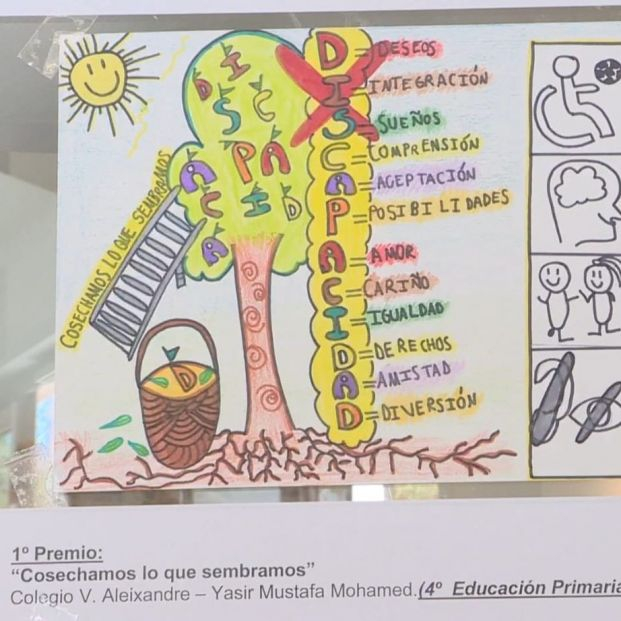 COSECHAMOS LO QUE SEMBRAMOS
DISCAPACIDAD
D = DESEOS
I = INTEGRACIÓN
S = SUEÑOS
C = COMPRENSIÓN
A = ACEPTACIÓN
P = POSIBILIDADES
A = AMOR
C = CARIÑO
I = IGUALDAD
D = DERECHOS
A = AMISTAD
D = DIVERSIÓN
1º Premio:
“Cosechamos lo que sembramos”
Colegio V. Aleixandre – Yasir Mustafa Mohamed.(4º Educación Primaria